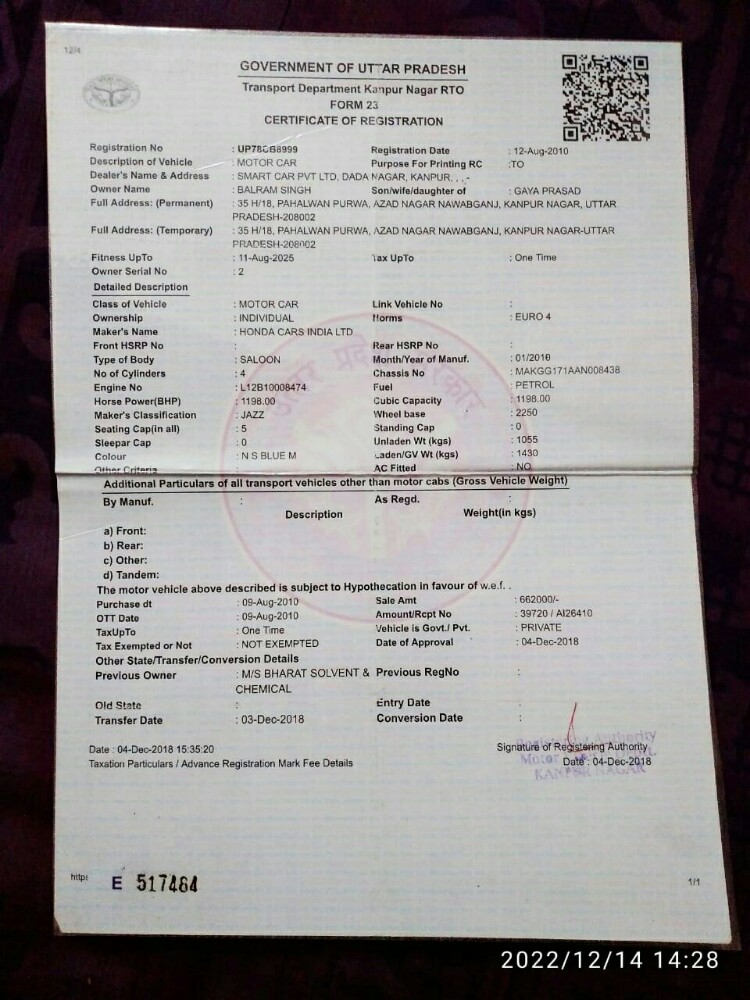 12/4
GOVERNMENT OF UTTAR PRADESH
Transport Department Kanpur Nagar RTO
FORM 23
CERTIFICATE OF REGISTRATION
Registration No : Registration Date : 12-Aug-2010
Description of Vehicle : MOTOR CAR Purpose For Printing RC :TO
Dealer's Name & Address : SMART CAR PVT LTD, DADA NAGAR, KANPUR, , ,-
Owner Name : BALRAM SINGH Son/wife/daughter of : GAYA PRASAD
Full Address: (Permanent) : 35 H/18, PAHALWAN PURWA, AZAD NAGAR NAWABGANJ, KANPUR NAGAR, UTTAR
PRADESH-208002
Full Address: (Temporary) : 35 H/18, PAHALWAN PURWA, AZAD NAGAR NAWABGANJ, KANPUR NAGAR-UTTAR
PRADESH-208002
Fitness UpTo : 11-Aug-2025 Tax UpTo : One Time
Owner Serial No : 2
Detailed Description
Class of Vehicle : MOTOR CAR Link Vehicle No :
Ownership : INDIVIDUAL Norms : EURO 4
Maker's Name : HONDA CARS INDIA LTD
Front HSRP No : Rear HSRP No :
Type of Body : SALOON Month/Year of Manuf. : 01/2010
No of Cylinders : 4 Chassis No : MAKGG171AAN008438
Engine No : L12B10008474 Fuel : PETROL
Horse Power(BHP) : 1198.00 Cubic Capacity : 1198.00
Maker's Classification : JAZZ Wheel base : 2250
Seating Cap(in all) : 5 Standing Cap : 0
Sleepar Cap : 0 Unladen Wt (kgs) : 1055
Colour : N S BLUE M Laden/GV Wt (kgs) : 1430
Other Criteria AC Fitted : NO
Additional Particulars of all transport vehicles other than motor cabs (Gross Vehicle Weight)
By Manuf. : As Regd. :
Description Weight(in kgs)
a) Front:
b) Rear:
c) Other:
d) Tandem:
The motor vehicle above described is subject to Hypothecation in favour of w.e.f. .
Purchase dt : 09-Aug-2010 Sale Amt : 662000/-
OTT Date : 09-Aug-2010 Amount/Rcpt No : 39720 / AI26410
TaxUpTo : One Time Vehicle is Govt./ Pvt. : PRIVATE
Tax Exempted or Not : NOT EXEMPTED Date of Approval : 04-Dec-2018
Other State/Transfer/Conversion Details
Previous Owner : M/S BHARAT SOLVENT & Previous RegNo :
CHEMICAL
Old State : Entry Date :
Transfer Date : 03-Dec-2018 Conversion Date :
Date : 04-Dec-2018 15:35:20 Signature of Registering Authority
Taxation Particulars / Advance Registration Mark Fee Details Date : 04-Dec-2018
Registering Authority
Motor
KANPUR NAGAR
https
E 517464
1/1
2022/12/14 14:28